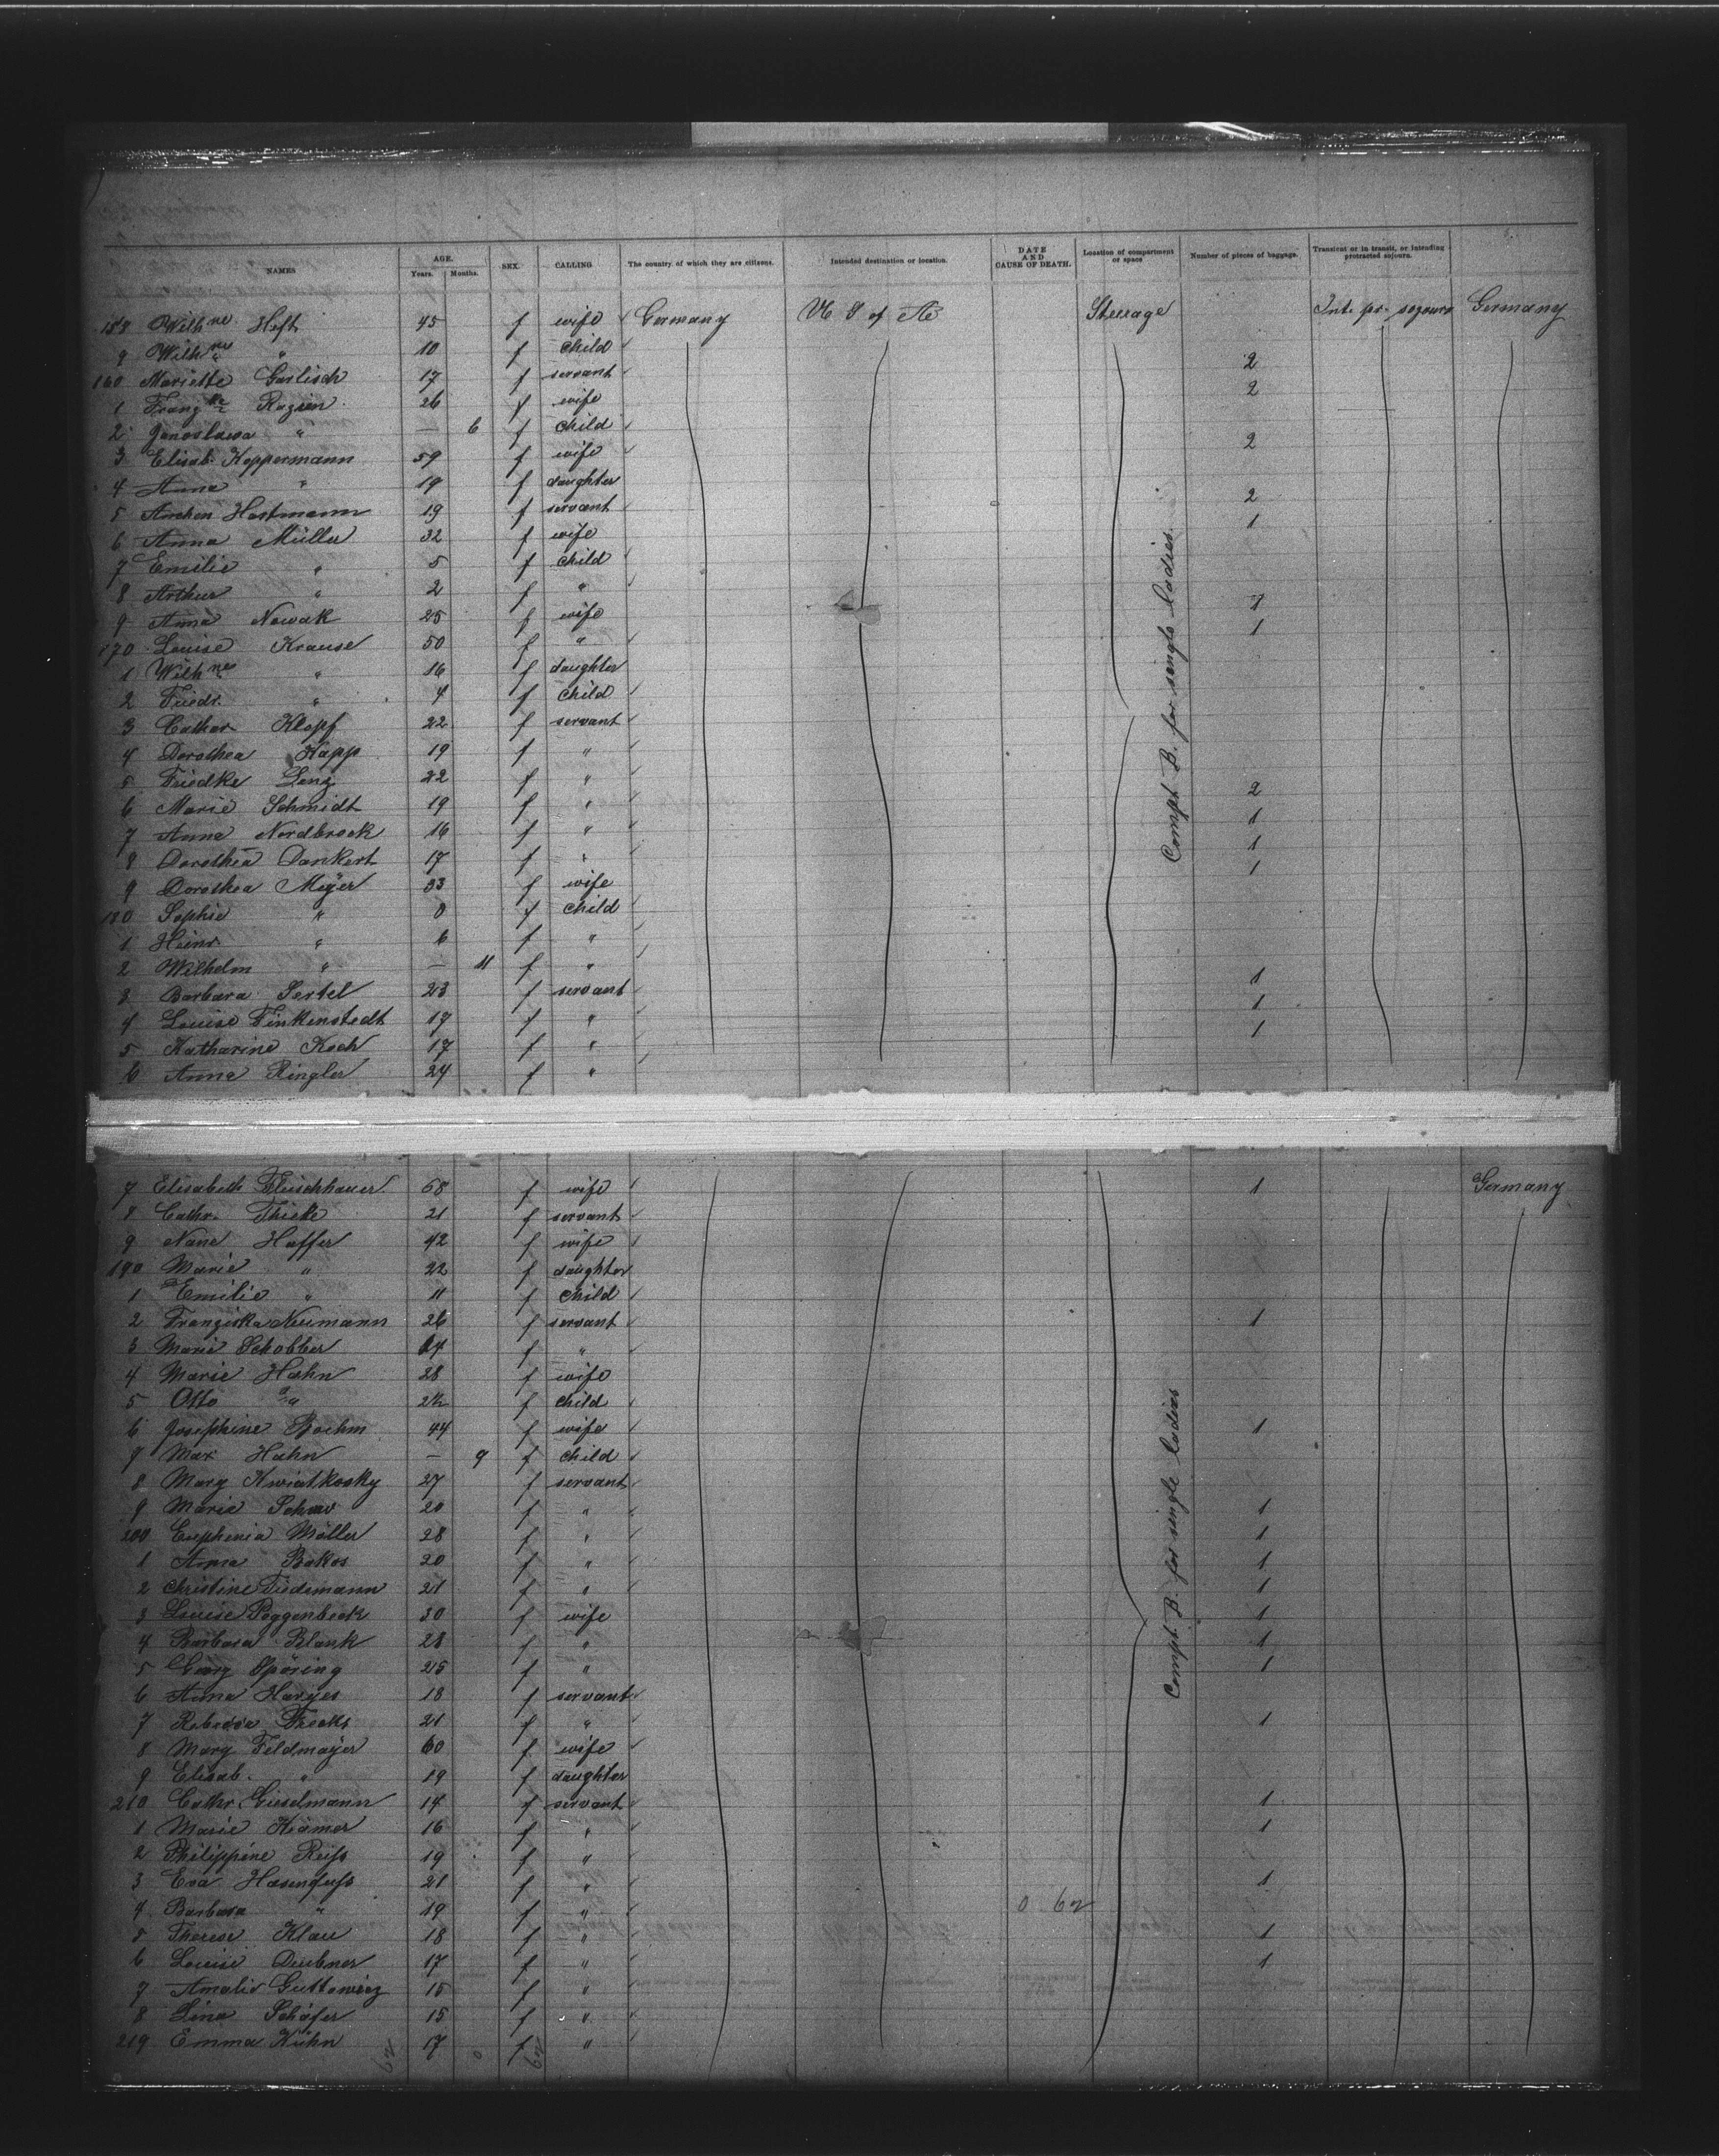 NAMES AGE. Years. Months. SEX. CALLING The country of which they are citizens. Intended destination or location. DATE AND CAUSE OF DEATH. Location of compartment or space Number of pieces of baggage. Transient or in transit, or intending protracted sojourn.
158 Wilhne Heft 45 f wife Germany U S of A Steerage Int. pr. sojourn Germany
9 Wilhne " 10 f child 2
160 Mariette Garlisch 17 f servant 2
1 Franzka Razsien 26 f wife
2 " — 6 f child 2
3 Elisab. Koppermann 59 f wife
4 Anna " 19 f daughter 2
5 Anchen Hartmann 19 f servant 1
6 Anna Müller 32 f wife
7 Emilie " 5 f child
8 Arthur " 2 f "
9 Anna Nowak 25 f wife 1
170 Louise Krause 50 f "
1 Wilhne " 16 f daughter
2 Friedr. " 4 f child
3 Cathar. Klopf 22 f servant
4 Dorothea Kapp 19 f "
5 Friedke Lenz 22 f " 2
6 Marie Schmidt 19 f " 1
7 Anna Nordbrock 16 f " 1
8 Dorothea Dankert 17 f " 1
9 Dorothea Meÿer 33 f wife
180 Sophie " 8 f child
1 Heinr. " 6 f "
2 Wilhelm " — 11 f " 1
3 Barbara Sertel 23 f servant 1
4 Louise Finkenstedt 17 f " 1
5 Katharine Koch 17 f "
6 Anna Ringler 24 f "
Compt. B. for single ladies
7 Elisabeth Fleischhauer 58 f wife 1 Germany
8 Cathr. Thiele 21 f servant
9 Nane Haffer 42 f wife
190 Marie " 22 f daughter
1 Emilie " 11 f child
2 Franziska Neumann 26 f servant 1
3 Marie Schobber f "
4 Marie Hahn 28 f wife
5 Otto " 2½ f child
6 Josephine Boehm 44 f wife 1
7 Max Hahn — 9 f child
8 Mary Kwiatkosky 27 f servant
9 Marie 20 f " 1
200 Euphenia Möller 28 f " 1
1 Anna Bakos 20 f " 1
2 Christine Tiedemann 21 f " 1
3 Louise Poggenbeck 30 f wife 1
4 Barbara Blank 28 f " 1
5 Georg Spöring 25 f " 1
6 Anna Harjes 18 f servant
7 Rebecca Freaks 21 f " 1
8 Mary Feldmaÿer 60 f wife
9 Elisab. " 19 f daughter
210 Cathr. Gieselmann 14 f servant 1
1 Marie Krämer 16 f " 1
2 Philippine Reiß 19 f "
3 Eva Hasenfuß 21 f " 1
4 Barbara " 19 f " 0 62
5 Therese Klau 18 f " 1
6 Louise Deubner 17 f " 1
7 Amalie Guttowicz 15 f "
8 Lina Schäfer 15 f "
219 Emma Kühn 17 f "
62 0 62
Compt. B. for single ladies